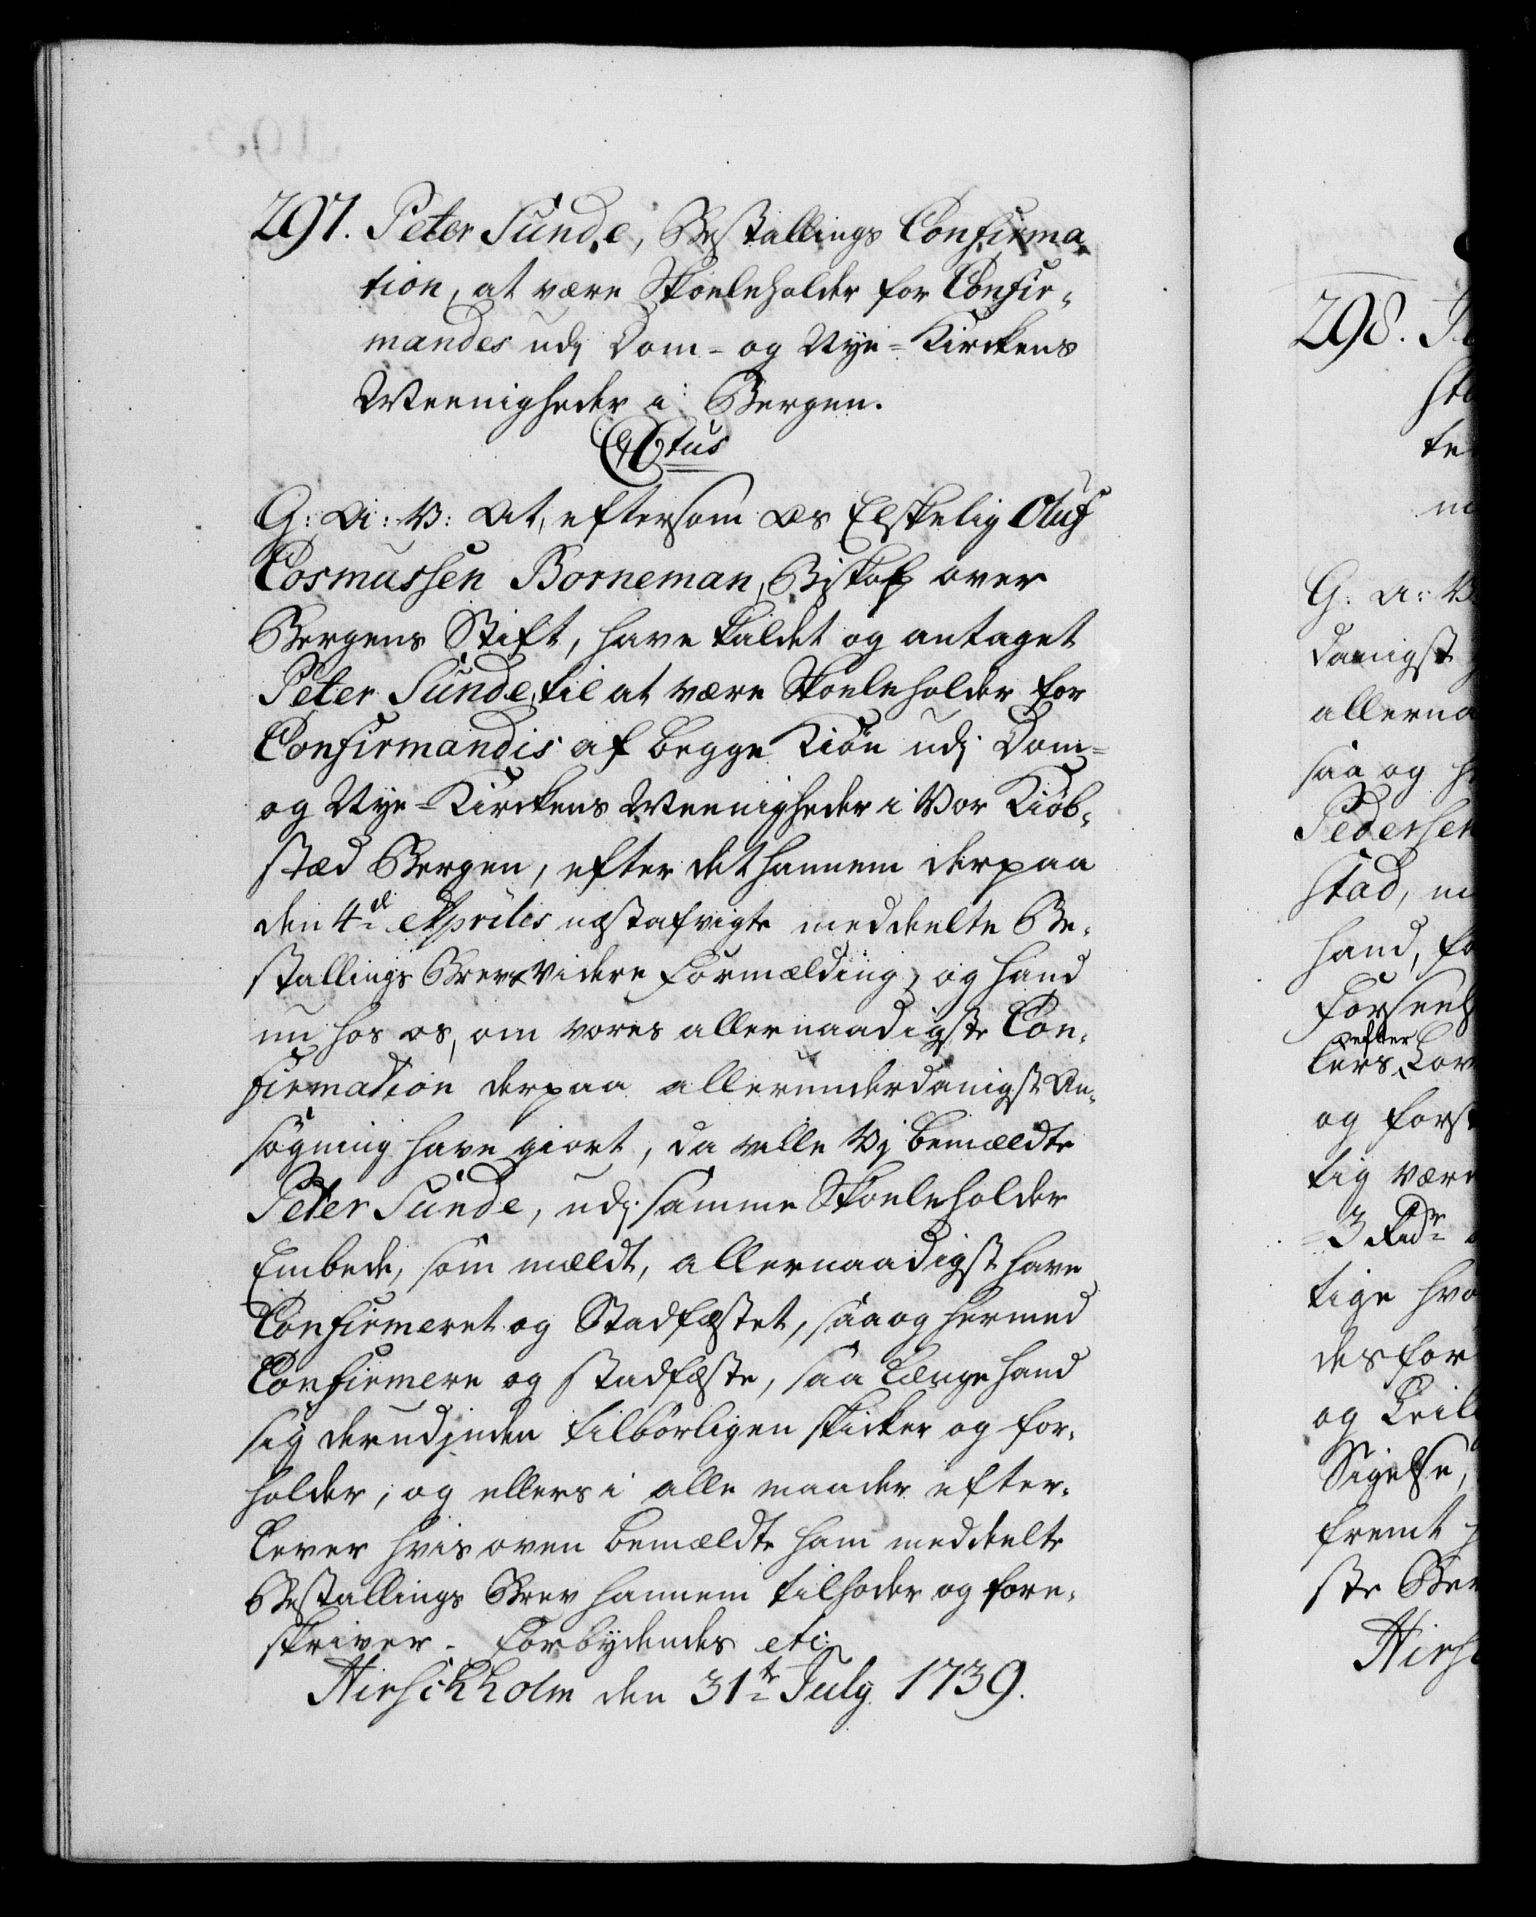 297. Peter Sunde, Bestallings Confirma-
tion, at være Skoeleholder for Confir-
mandes udj Dom- og Nye-Kirckens
Meenigheder i Bergen.
Ctus
G: A: V: At, eftersom Os Elskelig Oluf
Cosmussen Borneman, Biskop over
Bergens Stift, have kaldet og antaget
Peter Sunde, til at være Skoeleholder for
Confirmandis af begge Kiön udj Dom-
og Nye-Kirckens Meenigheder i Vor Kiöb-
stæd Bergen, efter det hannem derpaa
den 4de Aprilis næstafvigte meddeelte Be-
stallings Brevs videre Formælding, og hand
nu hos os, om vores allernaadigste Con-
firmation derpaa allerunderdanigst An-
søgning have giort, da ville Vj bemældte
Peter Sunde, udj samme Skoeleholder
Embede, som mældt, allernaadigst have
Confirmeret og Stadfæstet, saa og hermed
Confirmere og stadfæste, saa længe hand
sig derudjnden tilbörligen skicker og for-
holder, og ellers i alle maader efter-
lever hvis oven bemældte ham meddeelte
Bestallings Brev hannem tilholder og fore-
skriver. Forbydendes etc:
Hirschholm den 31te July 1739.
298.
G: A: V:
danigst
allerna
saa og
Pedersen
stad,
hand,
efter
og forst
tig være
3 Rdr
tige
desfor
og
fremt
ste
Hirsc